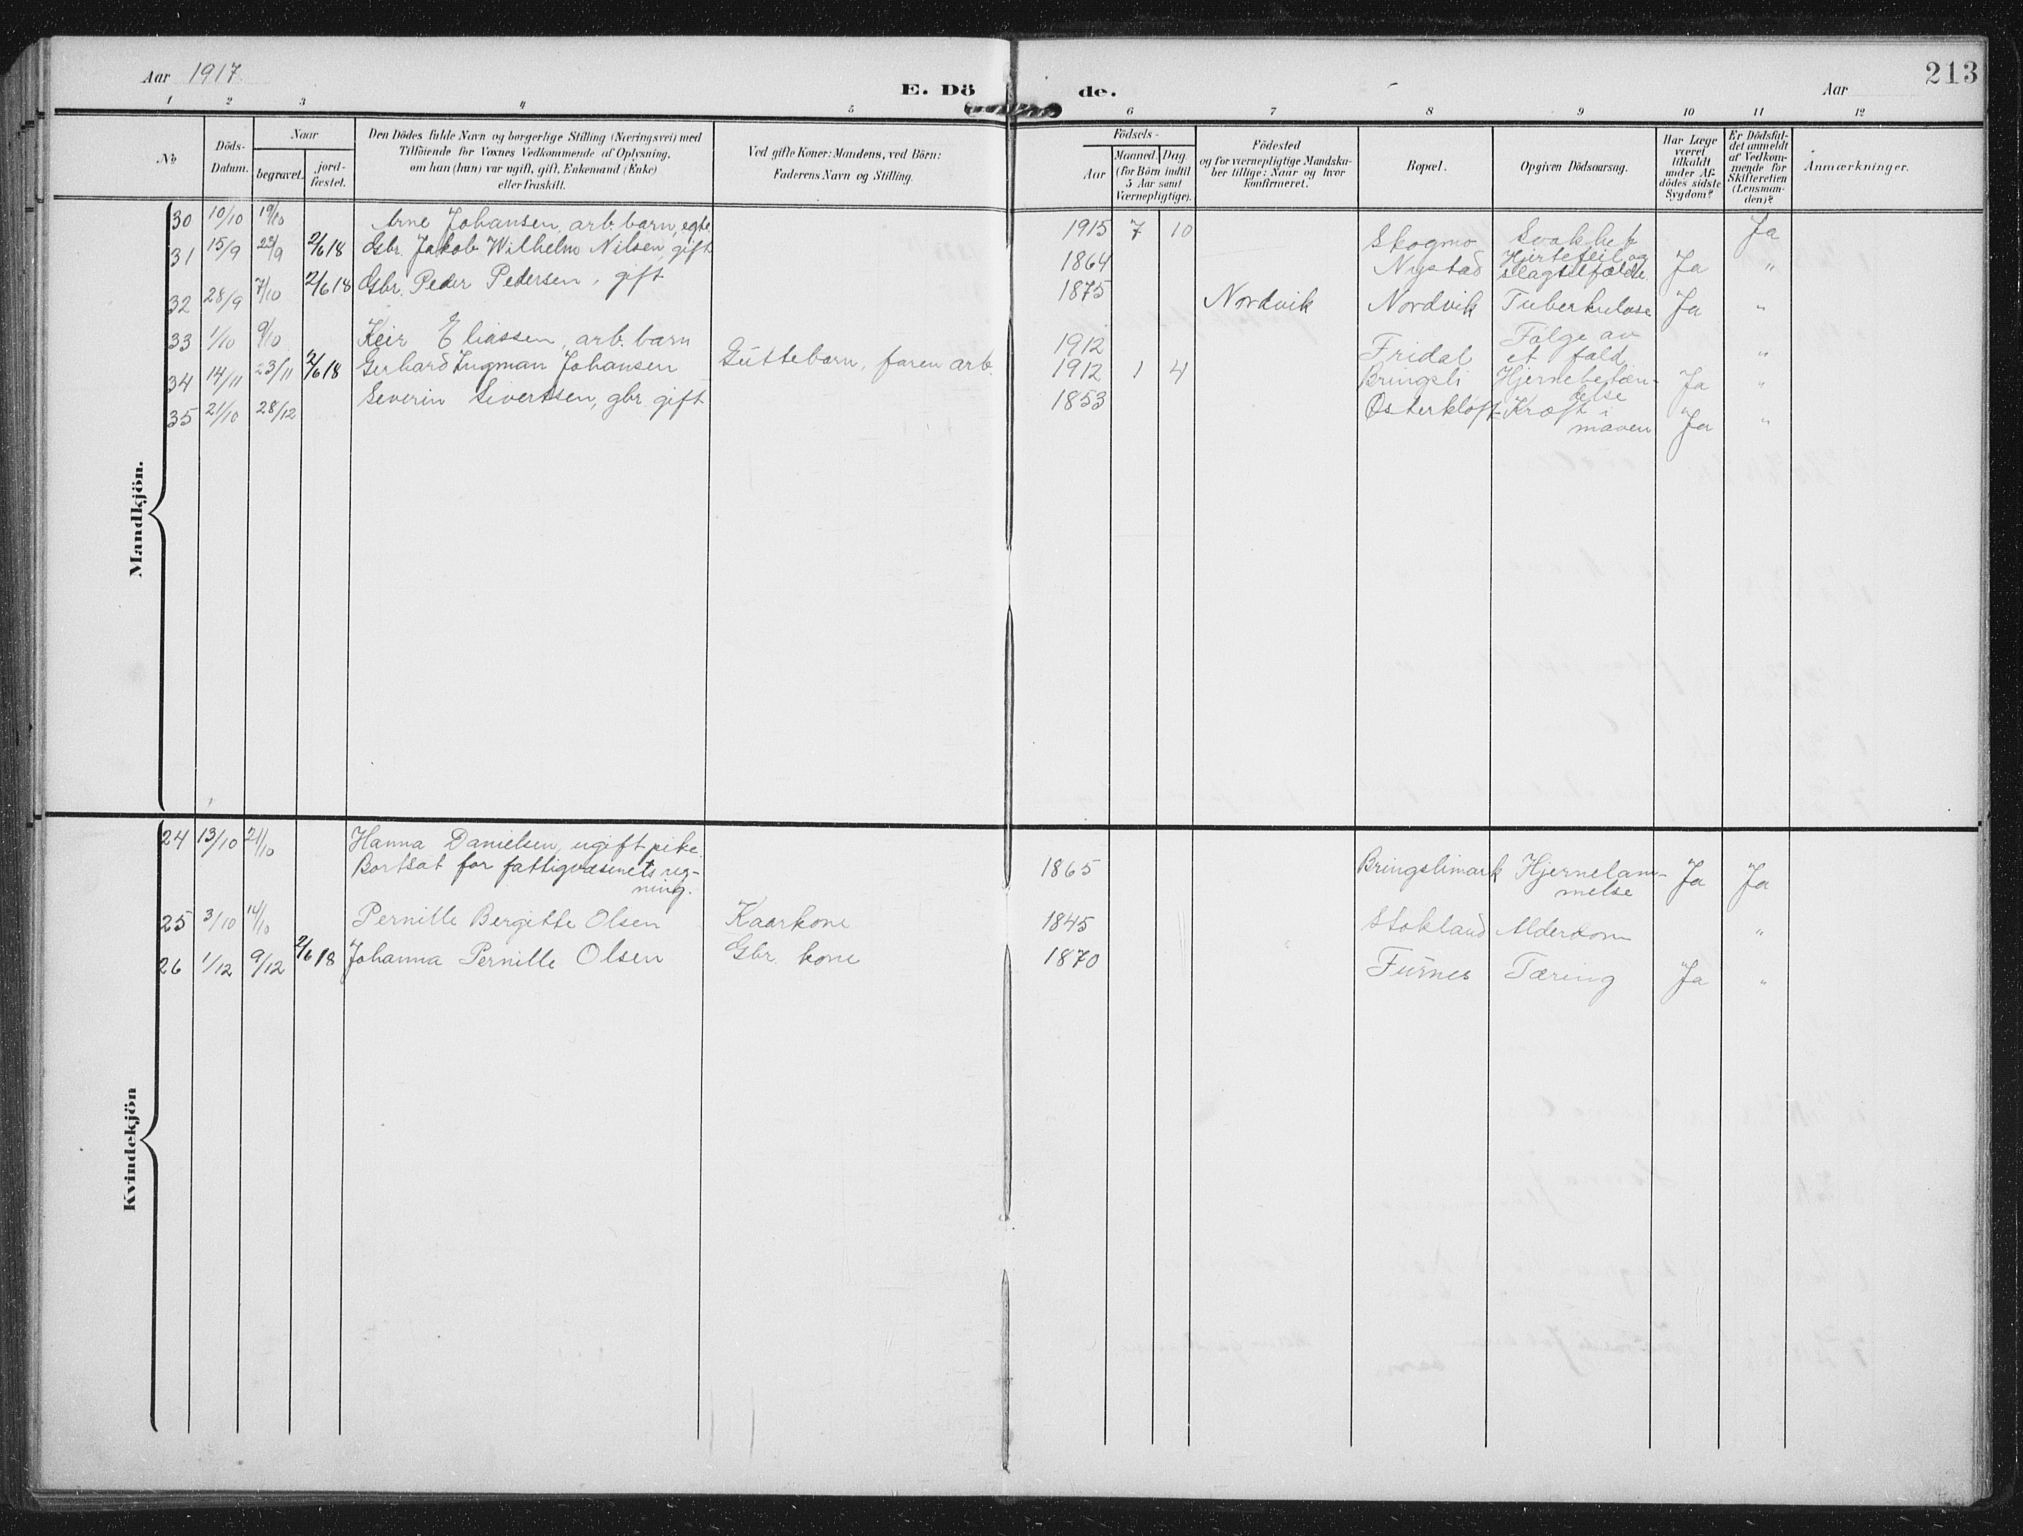 Aar 1917
E. Döde.
Aar
213
1 2 3 4 5 6 7 8 9 10 11 12
No
Döds-Datum.
Naar
begravet.
jord-fæstet.
Den Dödes fulde Navn og borgerlige Stilling (Næringsvei) med
Tilföiende for Voxnes Vedkommende af Oplysning,
om han (hun) var ugift, gift, Enkemand (Enke)
eller fraskilt.
Ved gifte Koner: Mandens, ved Börn:
Faderens Navn og Stilling.
Födsels-
Aar
Maaned. Dag.
(for Börn indtil
5 Aar samt
Værnepligtige).
Födested
og for værnepligtige Mandska-
ber tillige: Naar og hvor
konfirmeret.
Bopæl.
Opgiven Dödsaarsag.
Har Læge
været
tilkaldt
under Af-
dödes sidste
Sygdom?
Er Dödsfal-
det anmeldt
af Vedkom-
mende for
Skifteretten
(Lensman-
den)?
Anmærkninger.
Mandkjön.
30 10/10 19/10 Arne Johansen, arb. barn, egte 1915 7 10 Skogmo Svakhet Ja
31 15/9 22/9 2/6 18 Gbr. Jakob Wilhelm Nilsen, gift 1864 Nystad Hjertefeil og
slagtilfælde. Ja "
32 28/9 7/10 2/6 18 Gbr. Peder Pedersen, gift 1875 Nordvik Nordvik Tuberkulose Ja "
33 1/10 9/10 Keir Eliassen, arb. barn 1912 Fridal Følge av
et fald "
34 14/11 23/11 2/6 18 Gerhard Ingman Johansen Guttebarn, faren arb. 1912 1 4 Bringsli Hjernebetæn-
delse Ja "
35 21/10 28/12 Severin Sivertsen, gbr. gift 1853 Østerkløft Kræft i
maven Ja "
Kvindekjön
24 13/10 21/10 Hanna Danielsen, ugift pike.
Bortsat for fattigvæsenets reg-
ning. 1865 Bringslimark Hjernelam-
melse Ja Ja
25 3/10 14/10 Pernille Bergitte Olsen Kaarkone 1845 Stokland Alderdom "
26 1/12 9/12 2/6 18 Johanna Pernille Olsen Gbr. kone 1870 Furnes Tæring Ja "